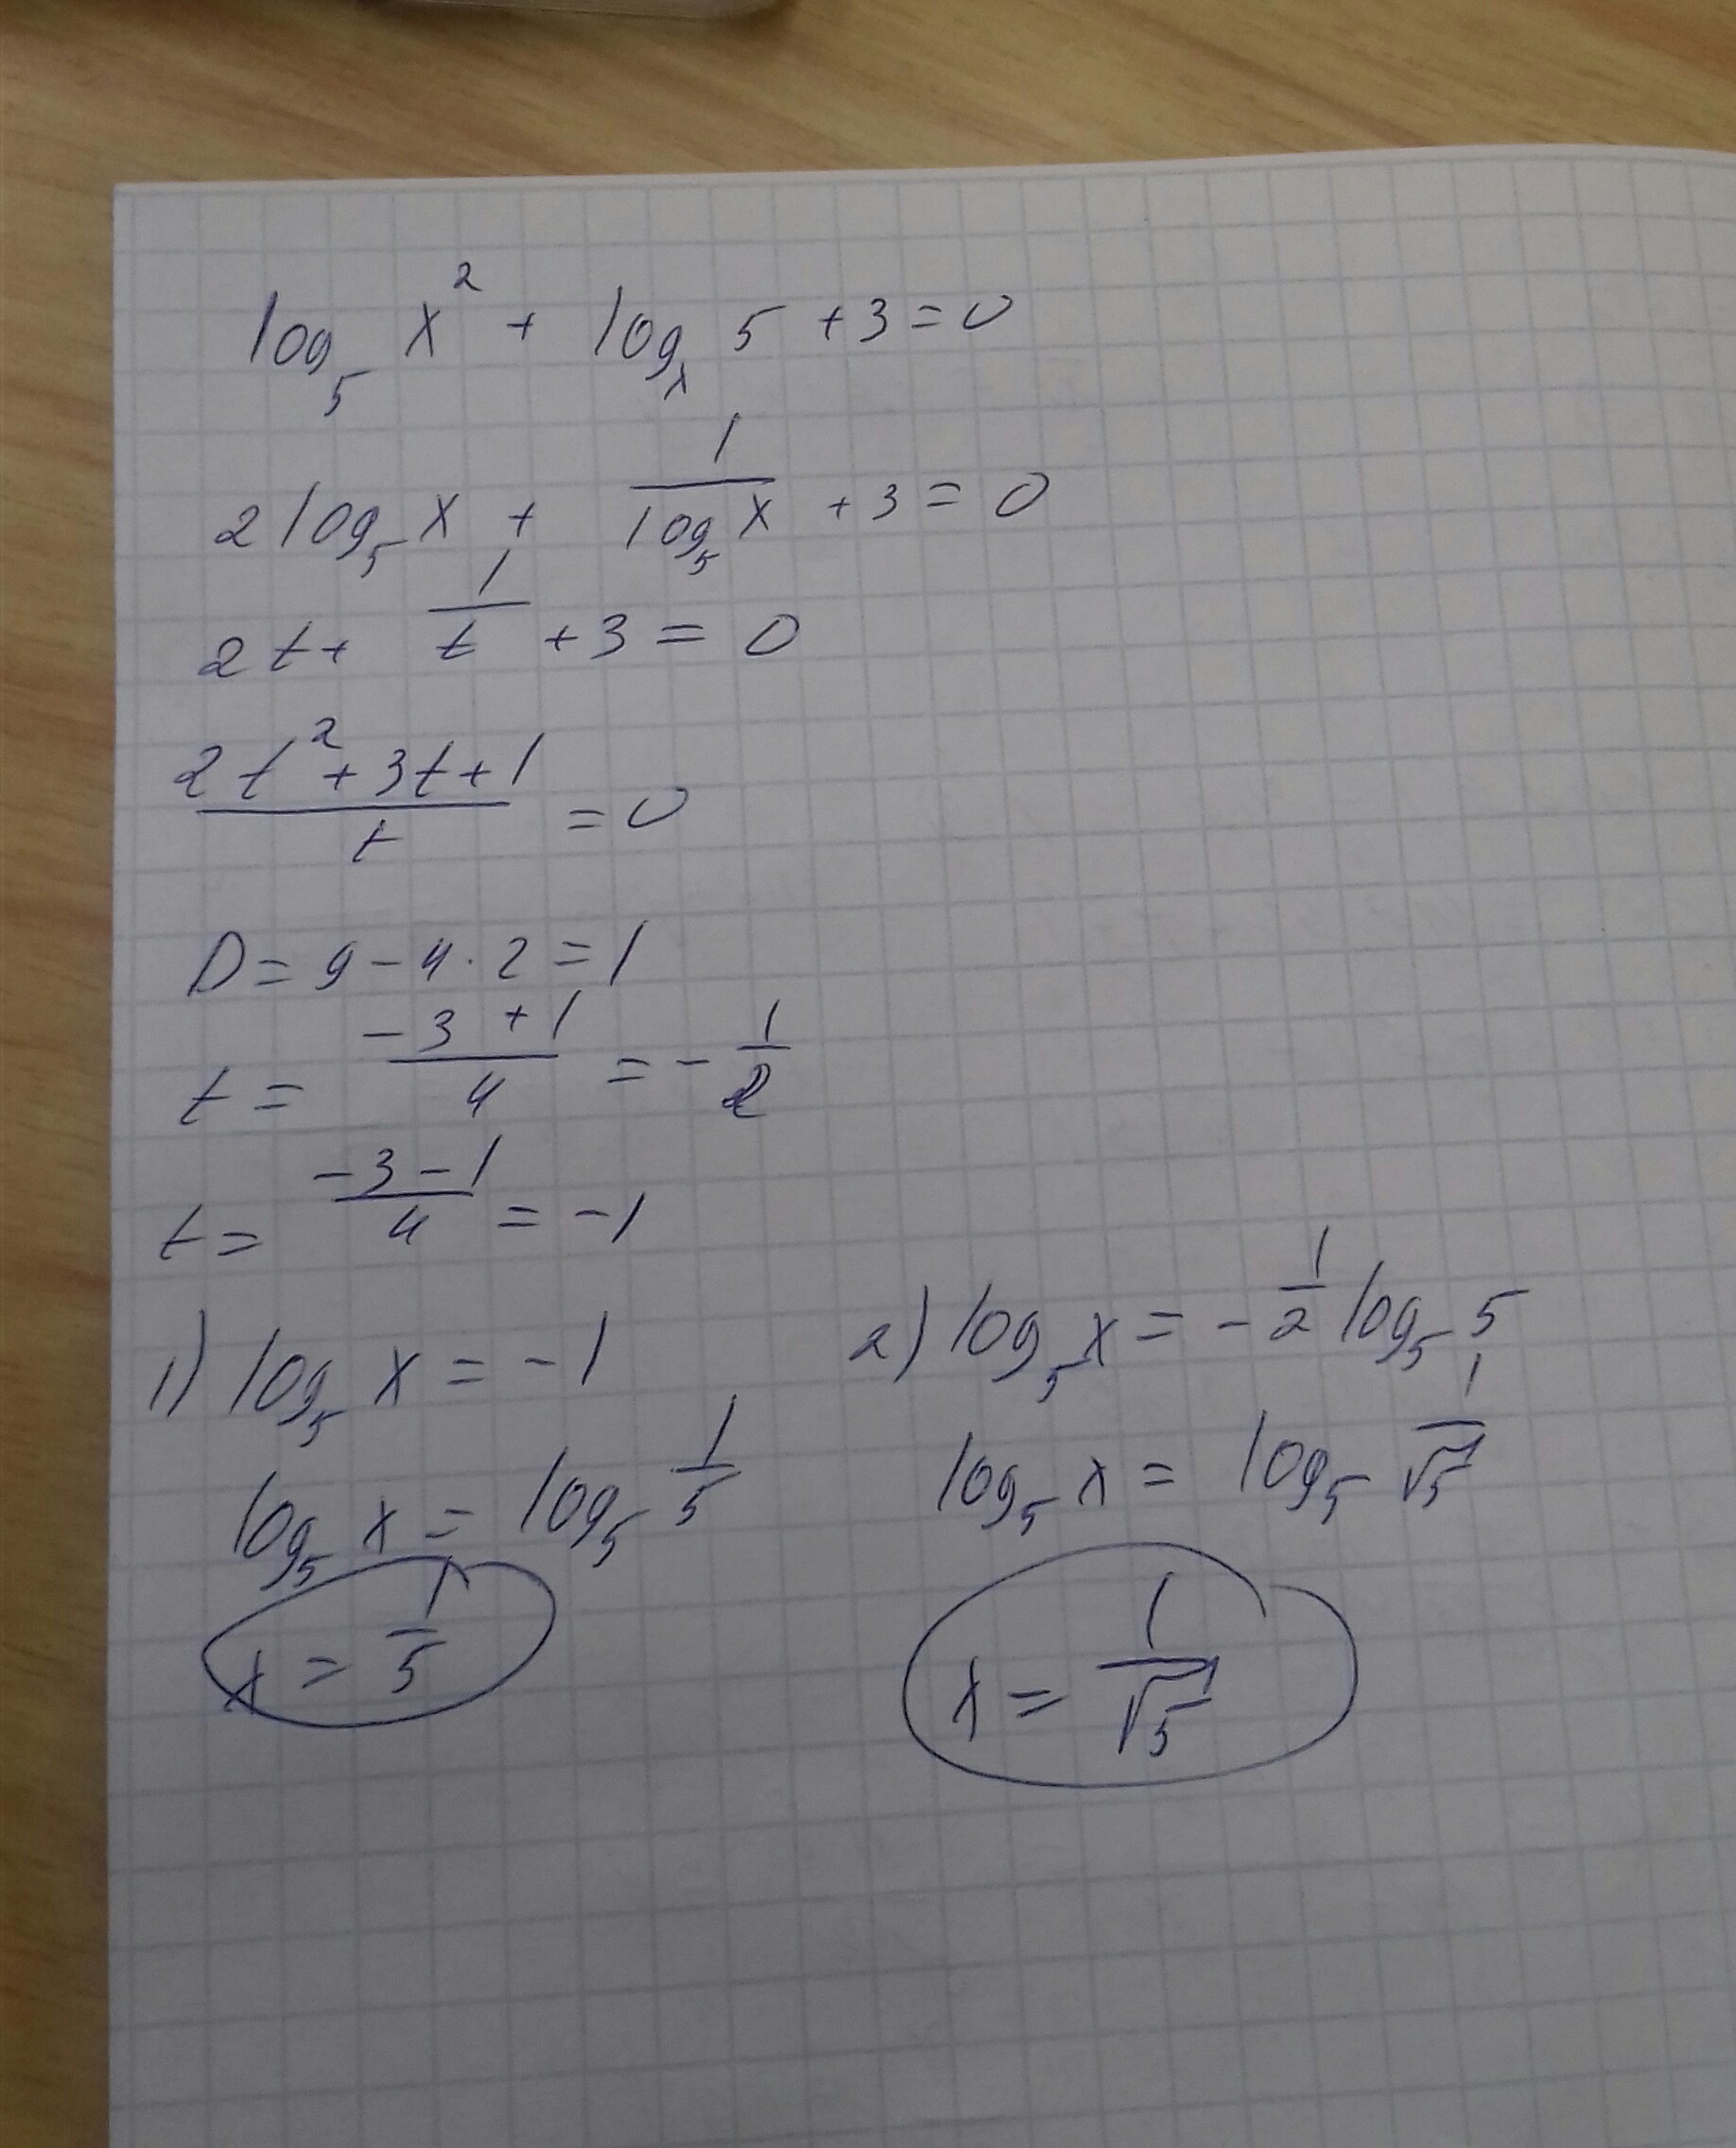 log₅ x² + logₓ 5 + 3 = 0
2 log₅ x + 1/(log₅ x) + 3 = 0
2t + 1/t + 3 = 0
(2t² + 3t + 1)/t = 0
D = 9 - 4 · 2 = 1
t = (-3 + 1)/4 = - 1/2
t = (-3 - 1)/4 = -1
1) log₅ x = -1
log₅ x = log₅ 1/5
x = 1/5
2) log₅ x = - 1/2 log₅ 5
log₅ x = log₅ 1/√5
x = 1/√5